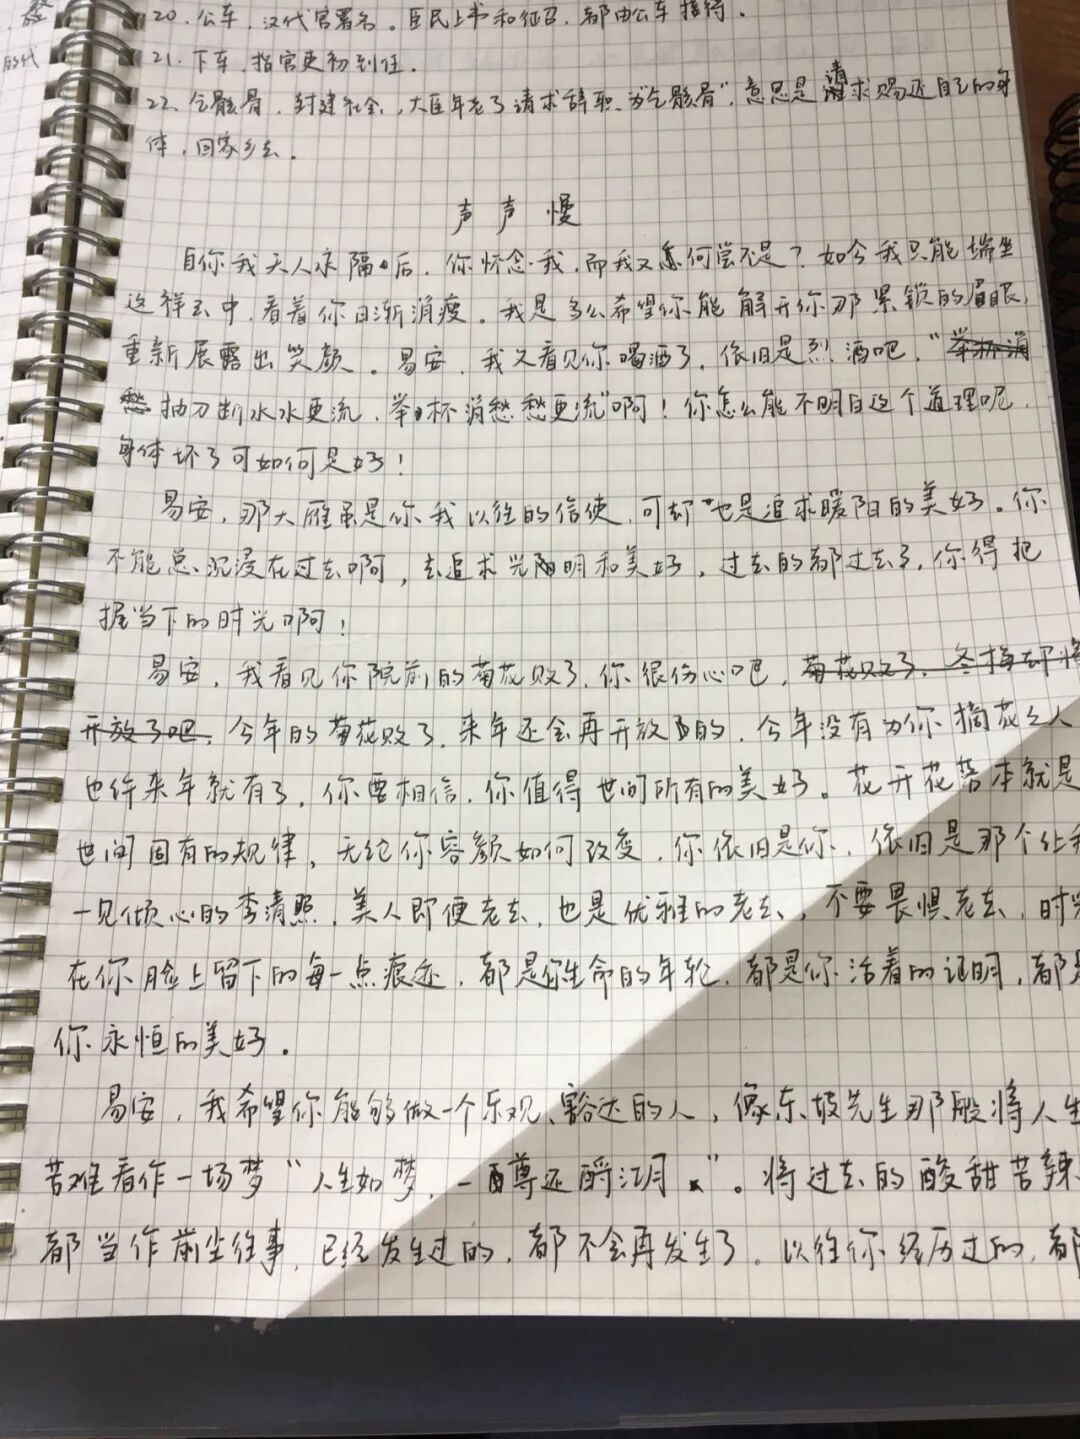 20. 公车，汉代官署名。臣民上书和征召，都由公车接待。
的代
21. 下车，指官吏初到任。
22. 乞骸骨，封建社会，大臣年老了请求辞职，为"乞骸骨"，意思是请求赐还自己的身
体，回家乡去。
声声慢
自你我天人永隔后，你怀念我，而我又何尝不是？如今我只能端坐
这祥云中，看着你日渐消瘦。我是多么希望你能解开你那紧锁的眉眼，
重新展露出笑颜。易安，我又看见你喝酒了，依旧是烈酒吧，"举杯消
愁抽刀断水水更流，举杯消愁愁更流"啊！你怎么能不明白这个道理呢，
身体坏了可如何是好！
易安，那大雁虽是你我以往的信使，可却也是追求暖阳的美好。你
不能总沉浸在过去啊，去追求光明和美好，过去的都过去了，你得把
握当下的时光啊！
易安，我看见你院前的菊花败了，你很伤心吧，菊花败了，冬梅却将
开放了吧，今年的菊花败了，来年还会再开放的，今年没有为你摘花之人
也许来年就有了，你要相信，你值得世间所有的美好。花开花落本就是
世间固有的规律，无论你容颜如何改变，你依旧是你，依旧是那个让我
一见倾心的李清照，美人即便老去，也是优雅的老去，不要畏惧老去，时光
在你脸上留下的每一点痕迹，都是你生命的年轮，都是你活着的证明，都是
你永恒的美好。
易安，我希望你能够做一个乐观、豁达的人，像东坡先生那般将人生
苦难看作一场梦"人生如梦，一尊还酹江月"。将过去的酸甜苦辣
都当作前尘往事，已经发生过的，都不会再发生了。以往你经历过的，都